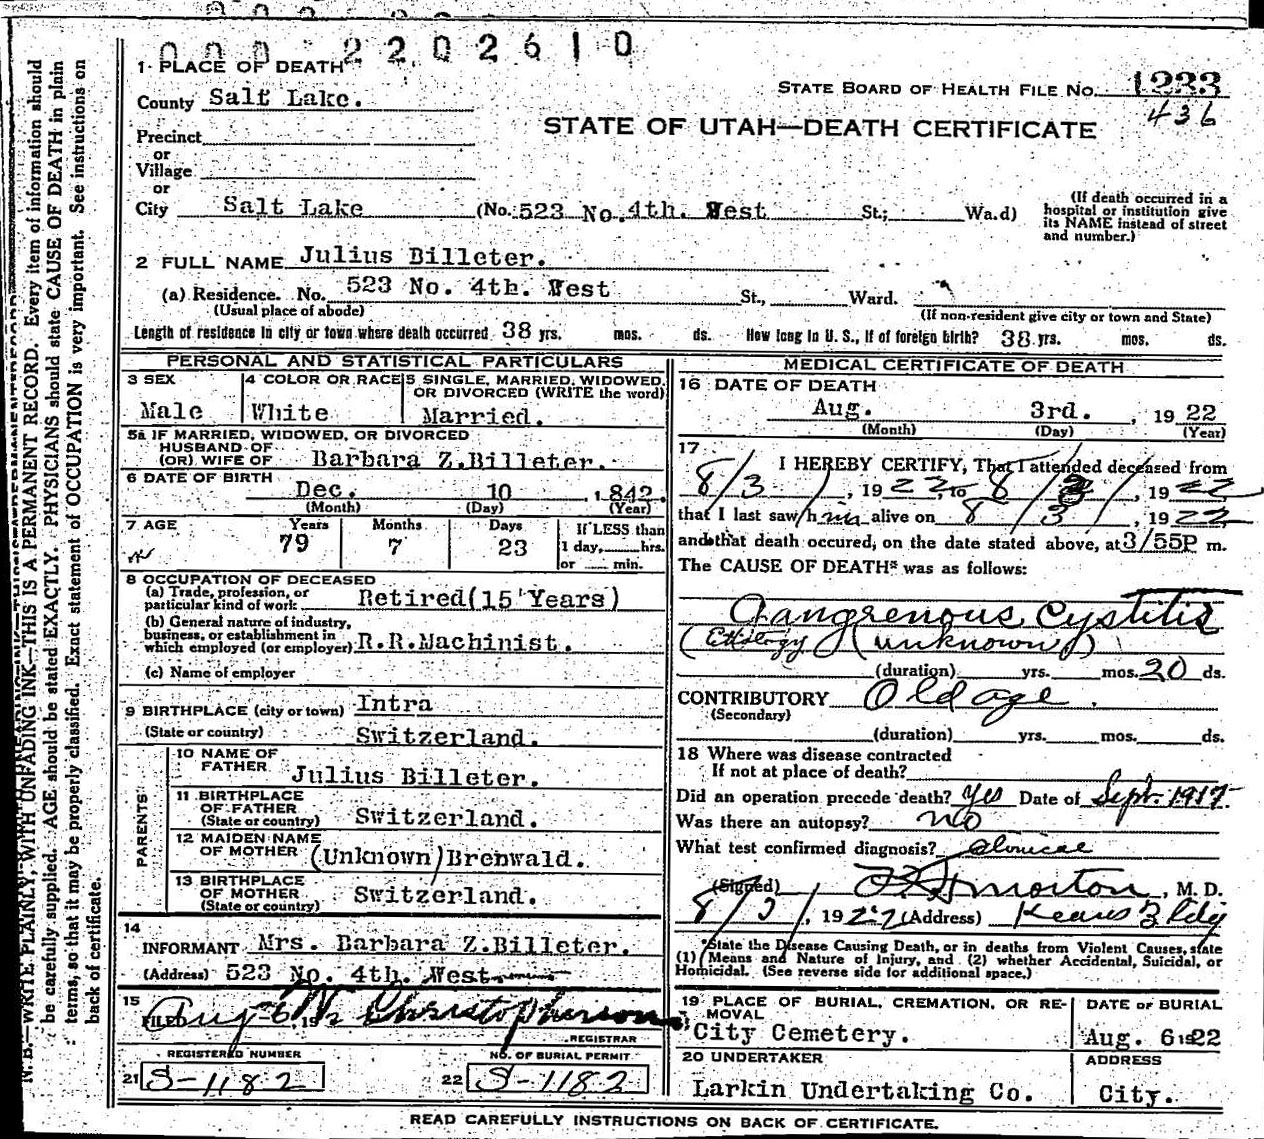 000 2202610
1 PLACE OF DEATH
STATE BOARD OF HEALTH FILE No. 1233
436
County Salt Lake.
STATE OF UTAH—DEATH CERTIFICATE
Precinct
or
Village
or
City Salt Lake (No. 523 No. 4th. West St.; Wa.d)
(If death occurred in a
hospital or institution give
its NAME instead of street
and number.)
2 FULL NAME Julius Billeter.
(a) Residence. No. 523 No. 4th. West St., Ward.
(Usual place of abode) (If non-resident give city or town and State)
Length of residence in city or town where death occurred 38 yrs. mos. ds. How long in U. S., if of foreign birth? 38 yrs. mos. ds.
PERSONAL AND STATISTICAL PARTICULARS
3 SEX 4 COLOR OR RACE 5 SINGLE, MARRIED, WIDOWED,
OR DIVORCED (WRITE the word)
Male White Married.
5a IF MARRIED, WIDOWED, OR DIVORCED
HUSBAND OF
(OR) WIFE OF Barbara Z.Billeter.
6 DATE OF BIRTH Dec. 10 1842.
(Month) (Day) (Year)
7 AGE Years Months Days If LESS than
79 7 23 1 day, hrs.
or min.
8 OCCUPATION OF DECEASED
(a) Trade, profession, or
particular kind of work Retired(15 Years)
(b) General nature of industry,
business, or establishment in
which employed (or employer) R.R.Machinist.
(c) Name of employer
9 BIRTHPLACE (city or town) Intra
(State or country) Switzerland.
PARENTS
10 NAME OF
FATHER Julius Billeter.
11 BIRTHPLACE
OF FATHER
(State or country) Switzerland.
12 MAIDEN NAME
OF MOTHER (Unknown)Brenwald.
13 BIRTHPLACE
OF MOTHER
(State or country) Switzerland.
14
INFORMANT Mrs. Barbara Z.Billeter.
(Address) 523 No. 4th. West
15
FILED Aug 6, 19 Christopherson
REGISTRAR
REGISTERED NUMBER NO. OF BURIAL PERMIT
21 S-1182 22 S-1182
MEDICAL CERTIFICATE OF DEATH
16 DATE OF DEATH
Aug. 3rd. , 19 22
(Month) (Day) (Year)
17
I HEREBY CERTIFY, That I attended deceased from
8/3/, 1922, to 8/3/, 1922
that I last saw him alive on 8/3/, 1922
and that death occured, on the date stated above, at 3/55P m.
The CAUSE OF DEATH* was as follows:
Gangrenous Cystitis
(Etiology (unknown)
(duration) yrs. mos. 20 ds.
CONTRIBUTORY Old age.
(Secondary)
(duration) yrs. mos. ds.
18 Where was disease contracted
If not at place of death?
Did an operation precede death? Yes Date of Sept. 1917
Was there an autopsy? no
What test confirmed diagnosis? Clinical
(Signed) Morton, M. D.
8/3/, 1922 (Address) Kearns Bldg
*State the Disease Causing Death, or in deaths from Violent Causes, state
(1) Means and Nature of Injury, and (2) whether Accidental, Suicidal, or
Homicidal. (See reverse side for additional space.)
19 PLACE OF BURIAL, CREMATION, OR RE-
MOVAL
City Cemetery.
DATE OF BURIAL
Aug. 6 1922
20 UNDERTAKER
Larkin Undertaking Co.
ADDRESS
City.
READ CAREFULLY INSTRUCTIONS ON BACK OF CERTIFICATE.
N. B.—WRITE PLAINLY, WITH UNFADING INK—THIS IS A PERMANENT RECORD. Every item of information should
be carefully supplied. AGE should be stated EXACTLY. PHYSICIANS should state CAUSE OF DEATH in plain
terms, so that it may be properly classified. Exact statement of OCCUPATION is very important. See instructions on
back of certificate.